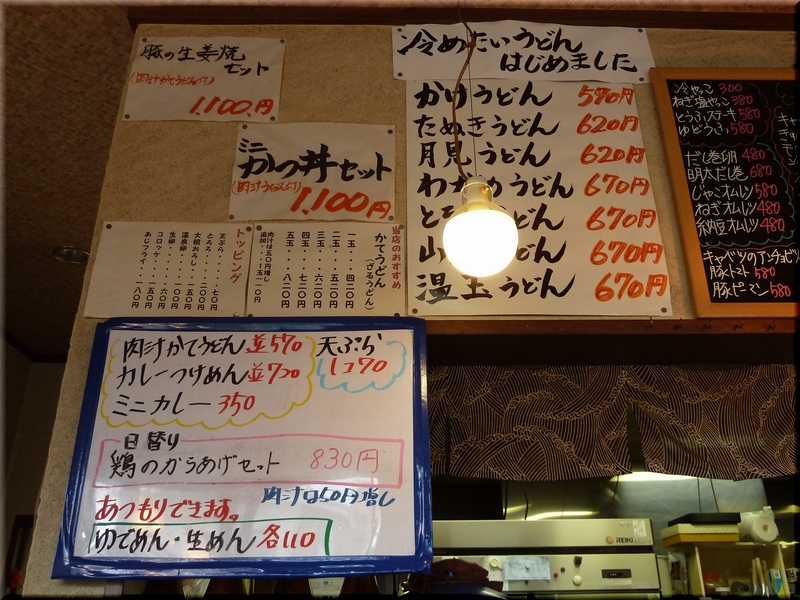 豚の生姜焼
セット
(肉汁かてうどん付)
1.100.円
ミニ
かつ丼セット
(肉汁うどん付)
1.100円
冷めたいうどん
はじめました
かけうどん 570円
たぬきうどん 620円
月見うどん 620円
わかめうどん 670円
うどん 670円
山 うどん 670円
温玉うどん 670円
冷やっこ 300
ねぎ塩やっこ 380
とうふステーキ 580
ゆどうふ 580
だし巻卵 480
明太だし巻 680
じゃこオムレツ 580
ねぎオムレツ 480
納豆オムレツ 480
キャベツのアンチョビソ
豚トマト 580
豚ピーマン 580
トッピング
天ぷら・・・・七〇円
とろろ・・・二〇〇円
大根おろし・一五〇円
温泉卵・・・一〇〇円
生卵・・・・・五〇円
コロッケ・・・六〇円
あじフライ・一八〇円
当店のおすすめ
かてうどん
(ざるうどん)
一玉・・・四二〇円
二玉・・・五二〇円
三玉・・・六二〇円
四玉・・・七二〇円
五玉・・・八二〇円
肉汁は五〇円増し
追加・・・一五〇円
肉汁かてうどん 並570
カレーつけめん 並720
ミニカレー 350
天ぷら
1コ70
日替り
鶏のからあげセット 830円
肉汁は50円増し
あつもりできます。
ゆでめん・生めん 各110
REIKI